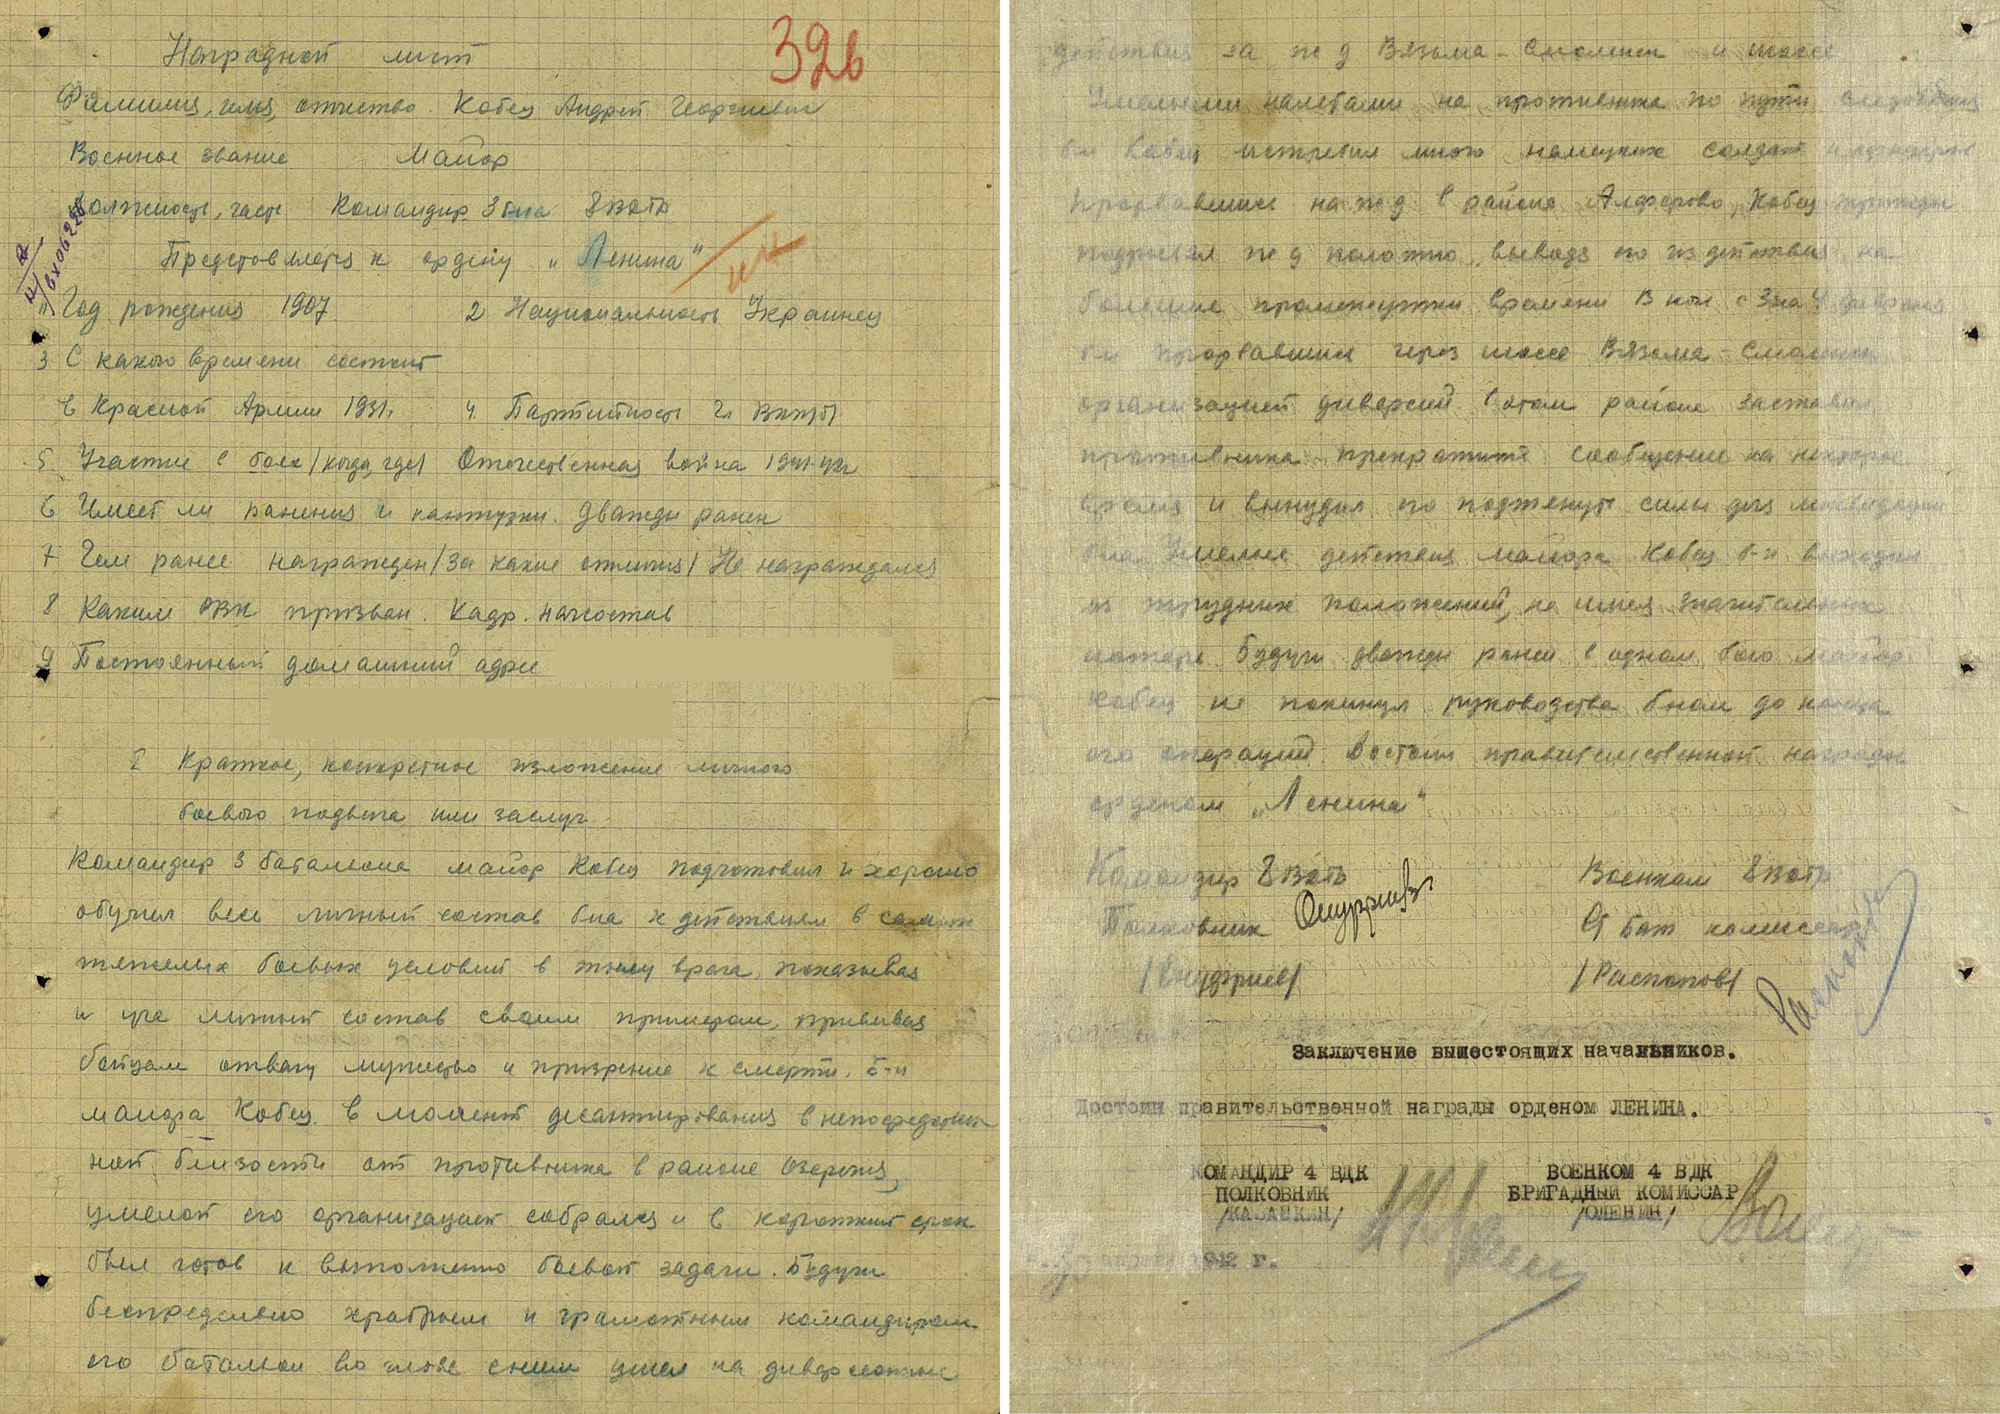 Наградной лист
326
Фамилия, имя, отчество. Кобец Андрей Георгиевич
Военное звание Майор
Должность, часть Командир 3 бна 8 ВЗБр
Представляется к ордену „Ленина"
Год рождения 1907 2 Национальность Украинец
3 С какого времени состоит
в Красной Армии 1931. 4. Партийность Чл ВКП(б)
5 Участие в боях /когда, где/ Отечественная война 1941-42г
6 Имеет ли ранения и контузии. Дважды ранен
7 Чем ранее награжден /За какие отличия/ Не награждался
8 Каким РВК призван. Кадр. начсостав
9 Постоянный домашний адрес
Краткое, конкретное изложение личного
боевого подвига или заслуг
Командир 3 батальона майор Кобец подготовил и хорошо
обучил весь личный состав бна к действиям в самых
тяжелых боевых условий в тылу врага, показывая
и уча личный состав своим примером, прививая
бойцам отвагу мужество и призрение к смерти. Б-н
майора Кобец в момент десантирования в непосредствен
ной близости от противника в районе Озеречня,
умелой его организацией собрался и в короткий срок
был готов к выполнению боевой задачи. Будучи
беспредельно храбрым и грамотным командиром
его батальон во главе с ним ушел на диверсионные
действия на ж д Вязьма - Смоленск и шоссе
Умелыми налетами на противника по пути следования
б-н Кобец истребил много немецких солдат и офицеров
Прорвавшись на ж д в районе Алферово, Кобец трижды
подрывал ж д полотно, выводя его из действия на
большие промежутки времени В ночь с 3 на 4 февраля
б-н прорвавшись через шоссе Вязьма - Смоленск
организацией диверсий в этом районе заставил
противника прекратить сообщение на некоторое
время и вынудил его подтянуть силы для ликвидации
бна. Умелые действия майора Кобец б-н выходил
из трудных положений, не имея значительных
потерь. Будучи дважды ранен в одном бою майор
Кобец не покинул руководства бном до конца
его операций. Достоин правительственной награды
орденом „Ленина"
Командир 8 ВЗБр Военком 8 ВЗБр
Полковник Ст Бат комиссар
/Ануфриев/ /Распопов/
Заключение вышестоящих начальников.
Достоин правительственной награды орденом ЛЕНИНА.
КОМАНДИР 4 ВДК ВОЕНКОМ 4 ВДК
ПОЛКОВНИК БРИГАДНЫЙ КОМИССАР
/КАЗАНКИН/ /ОЛЕНИН/
апреля 1942 г.